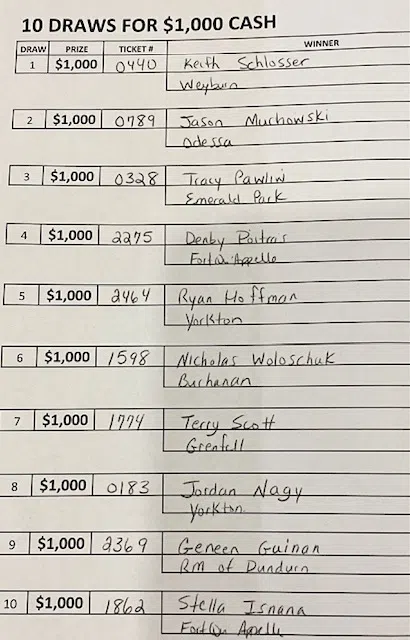 10 DRAWS FOR $1,000 CASH
DRAW PRIZE TICKET # WINNER
1 $1,000 0440 Keith Schlosser
Weyburn
2 $1,000 0789 Jason Muchowski
Odessa
3 $1,000 0328 Tracy Pawliw
Emerald Park
4 $1,000 2275 Denby Poitras
Fort Qu'Appelle
5 $1,000 2464 Ryan Hoffman
Yorkton
6 $1,000 1598 Nicholas Woloschuk
Buchanan
7 $1,000 1774 Terry Scott
Grenfell
8 $1,000 0183 Jordan Nagy
Yorkton
9 $1,000 2369 Geneen Guinan
RM of Dundurn
10 $1,000 1862 Stella Isnana
Fort Qu Appelle